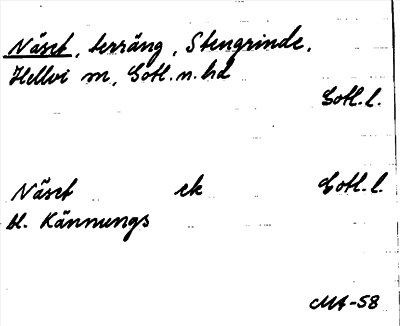 Näset, terräng, Stengrinde,
Hellvi sn, Gotl. n. hd
Gotl. l.
Näset ek Gotl. l.
bl. Kännungs
MA-58